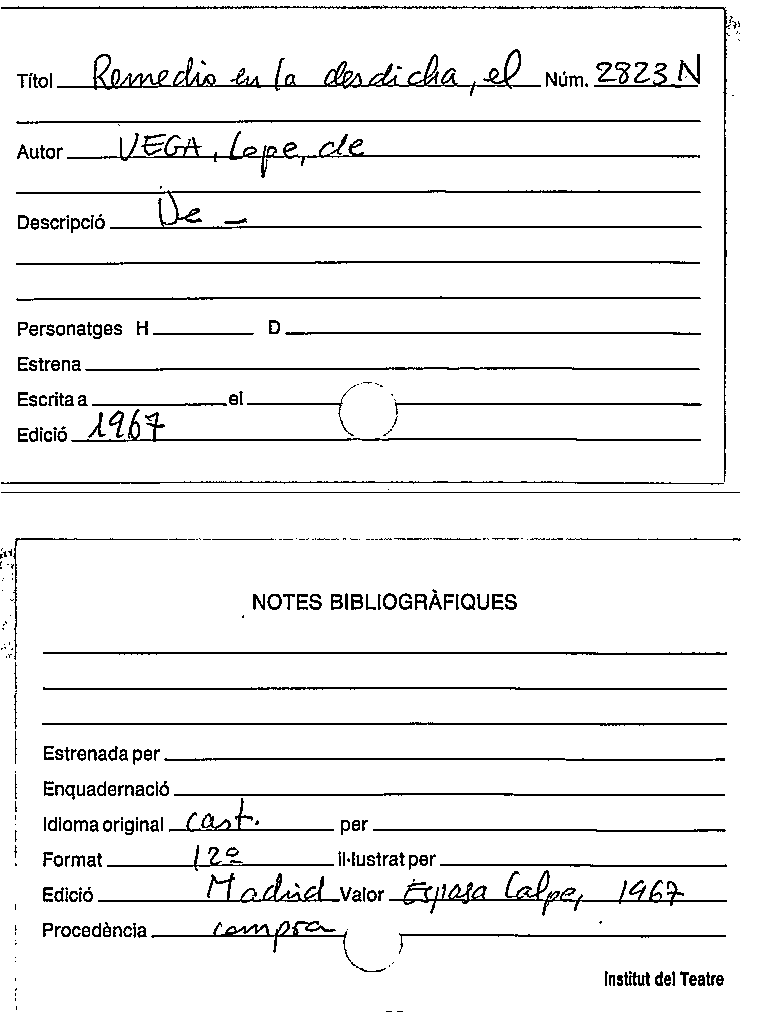 Títol Remedio en la desdicha, el Núm. 2823 N
Autor VEGA, Lope, de
Descripció De —
Personatges H D
Estrena
Escrita a el
Edició 1967
NOTES BIBLIOGRÀFIQUES
Estrenada per
Enquadernació
Idioma original cast. per
Format 12º il·lustrat per
Edició Madrid Valor Espasa Calpe, 1967
Procedència compra
Institut del Teatre